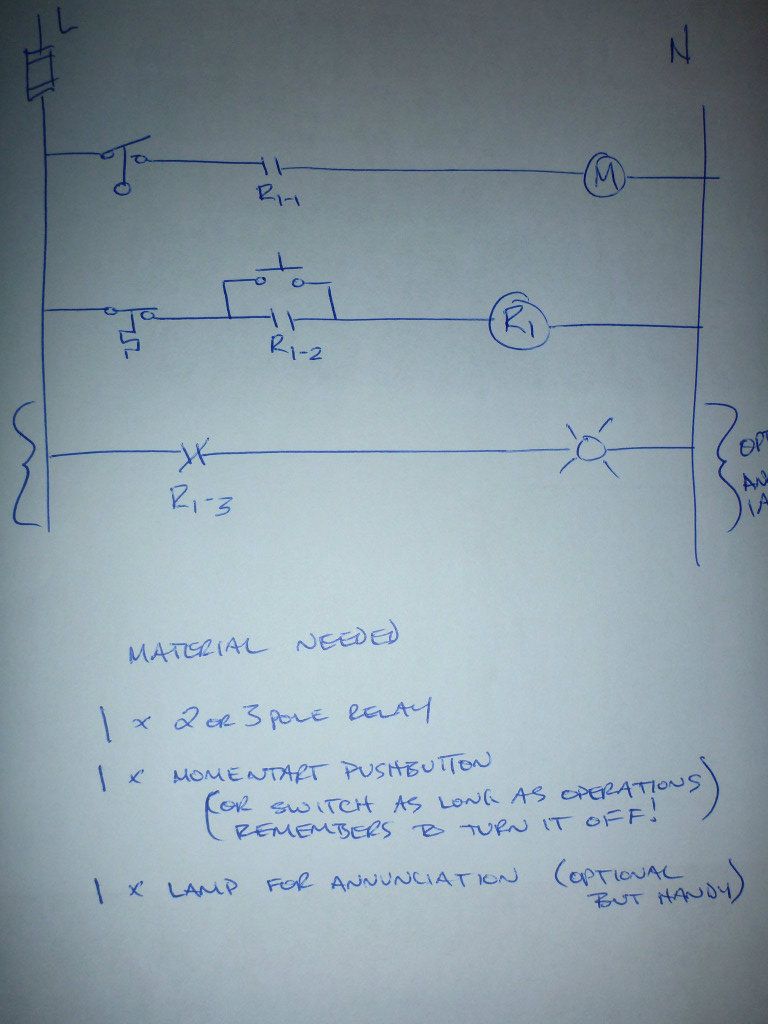 L
N
R1-1
M
R1-2
R1
R1-3
MATERIAL NEEDED
1 x 2 OR 3 POLE RELAY
1 x MOMENTART PUSHBUTTON
(OR SWITCH AS LONG AS OPERATIONS
REMEMBERS TO TURN IT OFF!)
1 x LAMP FOR ANNUNCIATION (OPTIONAL
BUT HANDY)